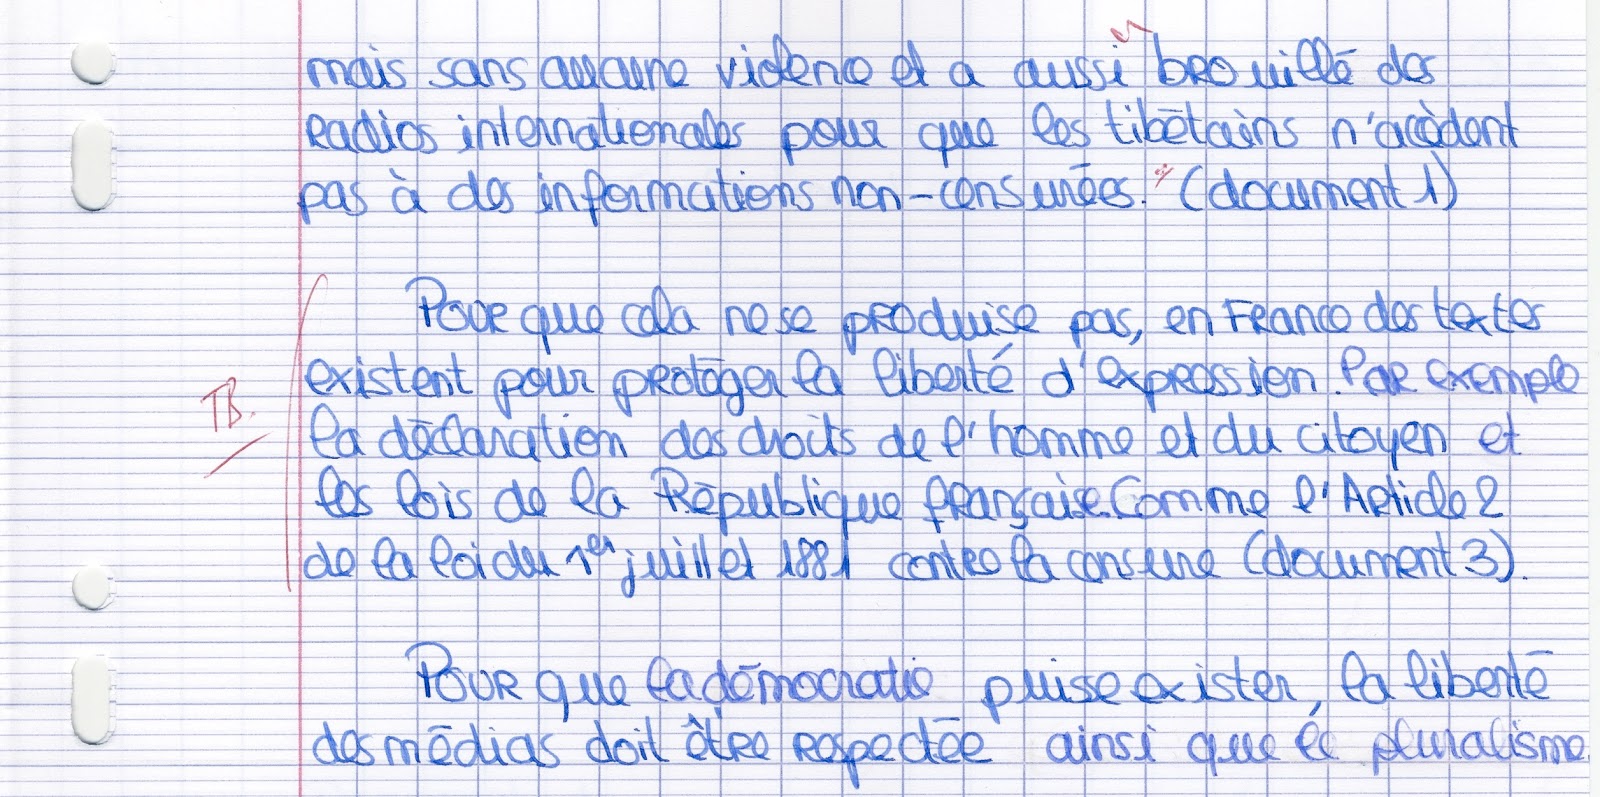 mais sans aucune violence et a aussi brouillé des
radios internationales pour que les tibétains n'accèdent
pas à des informations non-censurées." (document 1)
Pour que cela ne se produise pas, en France des textes
existent pour protéger la liberté d'expression. Par exemple
TB.
la déclaration des droits de l'homme et du citoyen et
les lois de la République française. Comme l'Article 2
de la loi du 1er juillet 1881 contre la censure (document 3).
Pour que la démocratie puise exister, la liberté
des médias doit être respectée ainsi que le pluralisme